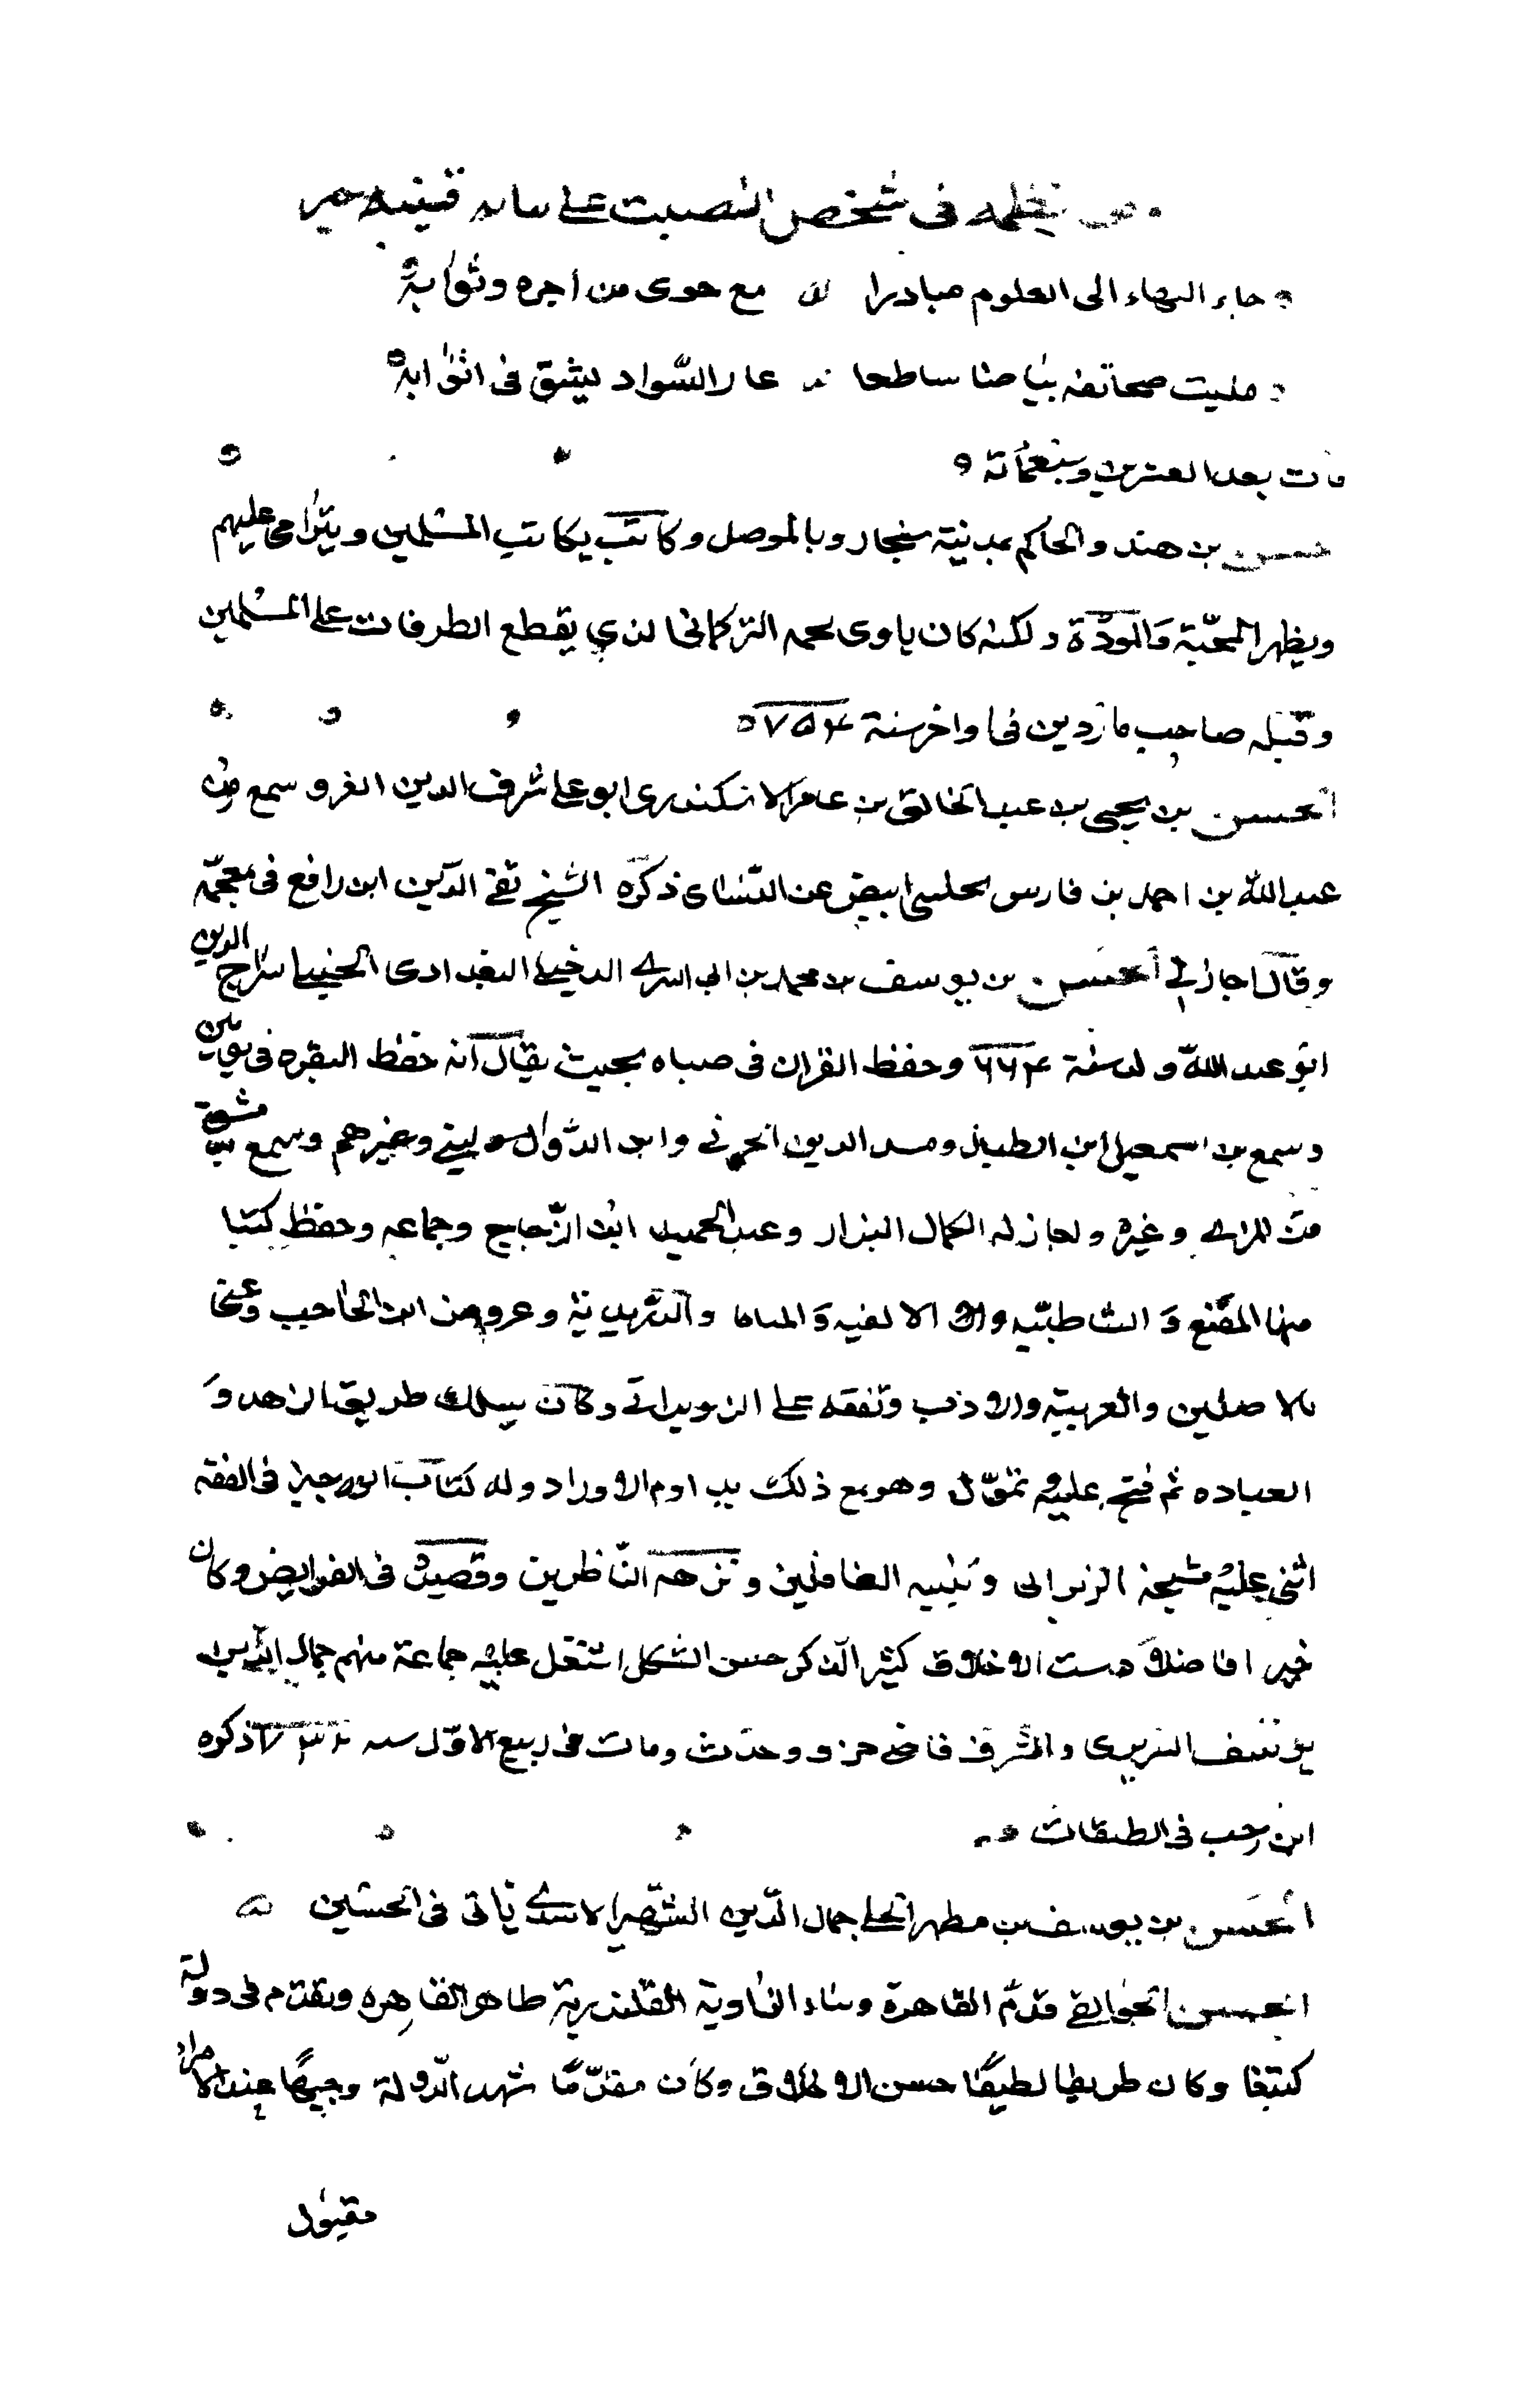 نظمه فى شخص انصبت على قنينة حبر
جاء البهاء الى العلوم مبادرا مع حوى من اجره وثوابه
مليت صحائفه بياضا ساطعا عار السواد ليشق فى اثوابه
مات بعد العشرين وسبعمائة
حسن بن هندو الحاكم بمدينة سنجار وبالموصل وكاتب يكاتب المسلمين ويترامى عليهم
ويظهر المحبّة والمودّة ولكنه كان ياوى محمد التركمانى الذي يقطع الطرقات على المسلمين
وقتله صاحب ماردين فى اواخر سنة ٧٥٤
الحسن بن يحيى بن عبد الخالق بن عامر الاسكندرى ابو على شرف الدين سمع من
عبد الله بن احمد بن فارس ذكره الشيخ تقى الدّين ابن رافع فى معجمه
وقال اجاز لي الحسن بن يوسف بن محمد بن ابى السرى الدجيلى البغدادى الحنبلى سراج الدين
ابو عبد الله ولد سنة ٦٦٤ وحفظ القران فى صباه بحيث يقال انه حفظ البقره فى يومين
وسمع من اسمعيل ابن الطبال ومفيد الدين الحربى وابن الدواليبى وغيرهم وسمع بدمشق
من المزى وغيره واجاز له الكمال البزار وعبد الحميد ابن الزّجاج وجماعه وحفظ كتبا
منها المقنع والشاطبيّه والالفيه والمقامات وعروض ابن الحاجب وعنى
بالاصلين والعربية والادب وتفقه على الزريرانى وكان يسلك طريق الزهد و
العباده ثم فتح عليه تموّل وهو مع ذلك يداوم الاوراد وله كتاب الوجيز فى الفقه
اثنى عليه شيخه الزريرانى وتنبيه الغافلين ونزهه النّاظرين وقصيدة فى الفرايض وكان
خيرا فاضلا دمث الاخلاق كثير الذكر حسن الشكل اشتغل عليه جماعة منهم جمال الدّين
يوسف والشرف قاضى حربه وحدّث ومات فى ربيع الاوّل سنه ٧٣٢ ذكره
ابن رجب فى الطبقات
الحسن بن يوسف بن مطهر الحلى جمال الدّين الشهير الاسدى ياتى فى الحسين
الحسن الجوالقى قدم القاهرة وبناء الزاوية القلندرية ظاهر القاهره وتقدّم فى دولة
كتبغا وكان ظريفا لطيفًا حسن الاخلاق وكان مقدّمًا شهد الدّولة وجيهًا عند الامراء
مقبول